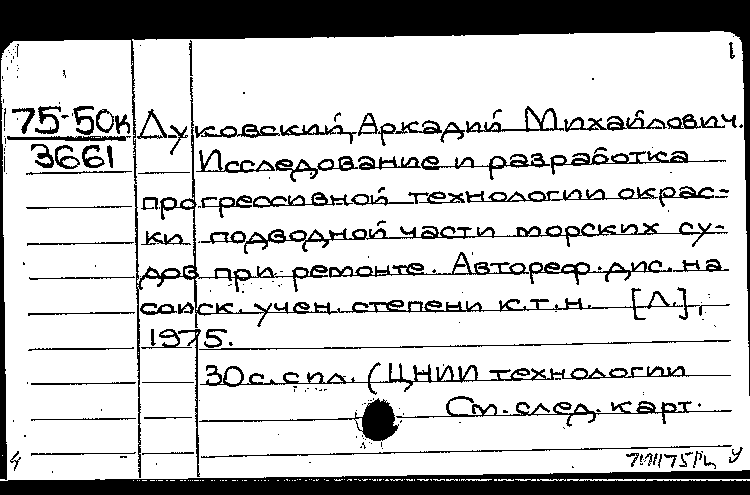 1
75-50к Луковский, Аркадий Михайлович.
3661 Исследование и разработка
прогрессивной технологии окрас-
ки подводной части морских су-
дов при ремонте. Автореф. дис. на
соиск. учен. степени к.т.н. [Л.],
1975.
30 с. с ил. (ЦНИИ технологии
См. след. карт.
4